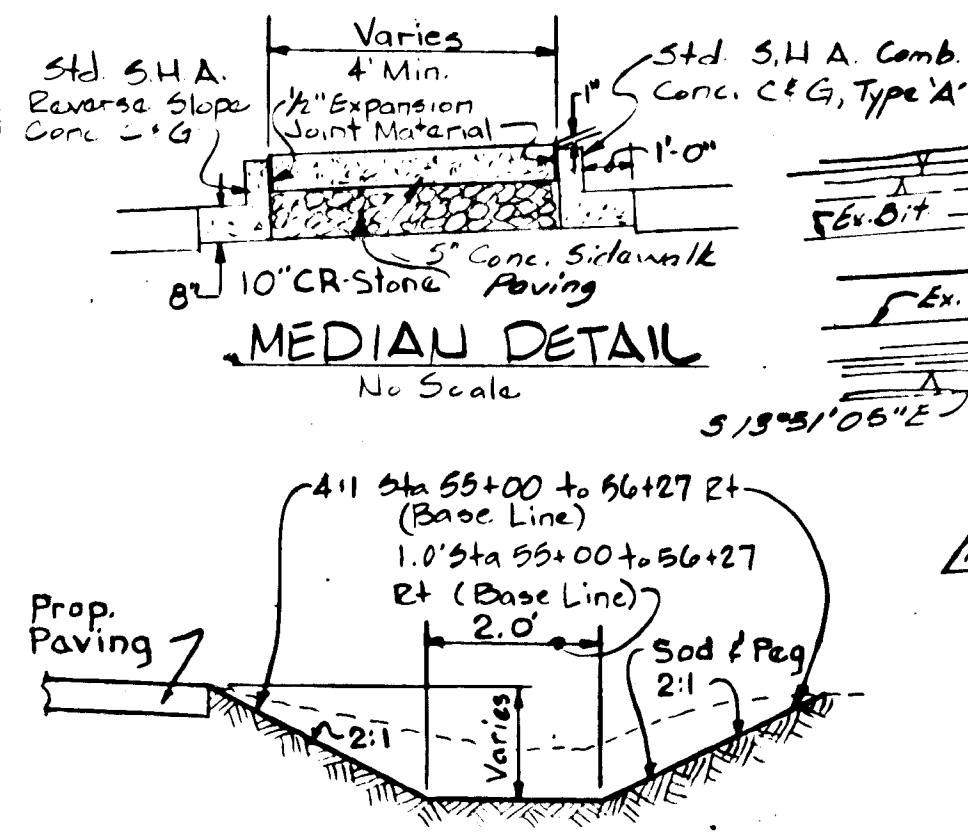 Varies
4' Min.
Std. S.H.A.
Reverse Slope
Conc C & G
1/2" Expansion
Joint Material
1"
Std. S.H.A. Comb.
Conc. C & G, Type 'A'
1'-0"
8"
10" CR-Stone
5" Conc. Sidewalk
Paving
MEDIAN DETAIL
No Scale
Ex. Bit
Ex.
S 13°51'05" E
4:1 Sta 55+00 to 56+27 Rt
(Base Line)
1.0' Sta 55+00 to 56+27
Rt (Base Line)
2.0'
Prop.
Paving
Sod & Peg
2:1
2:1
Varies